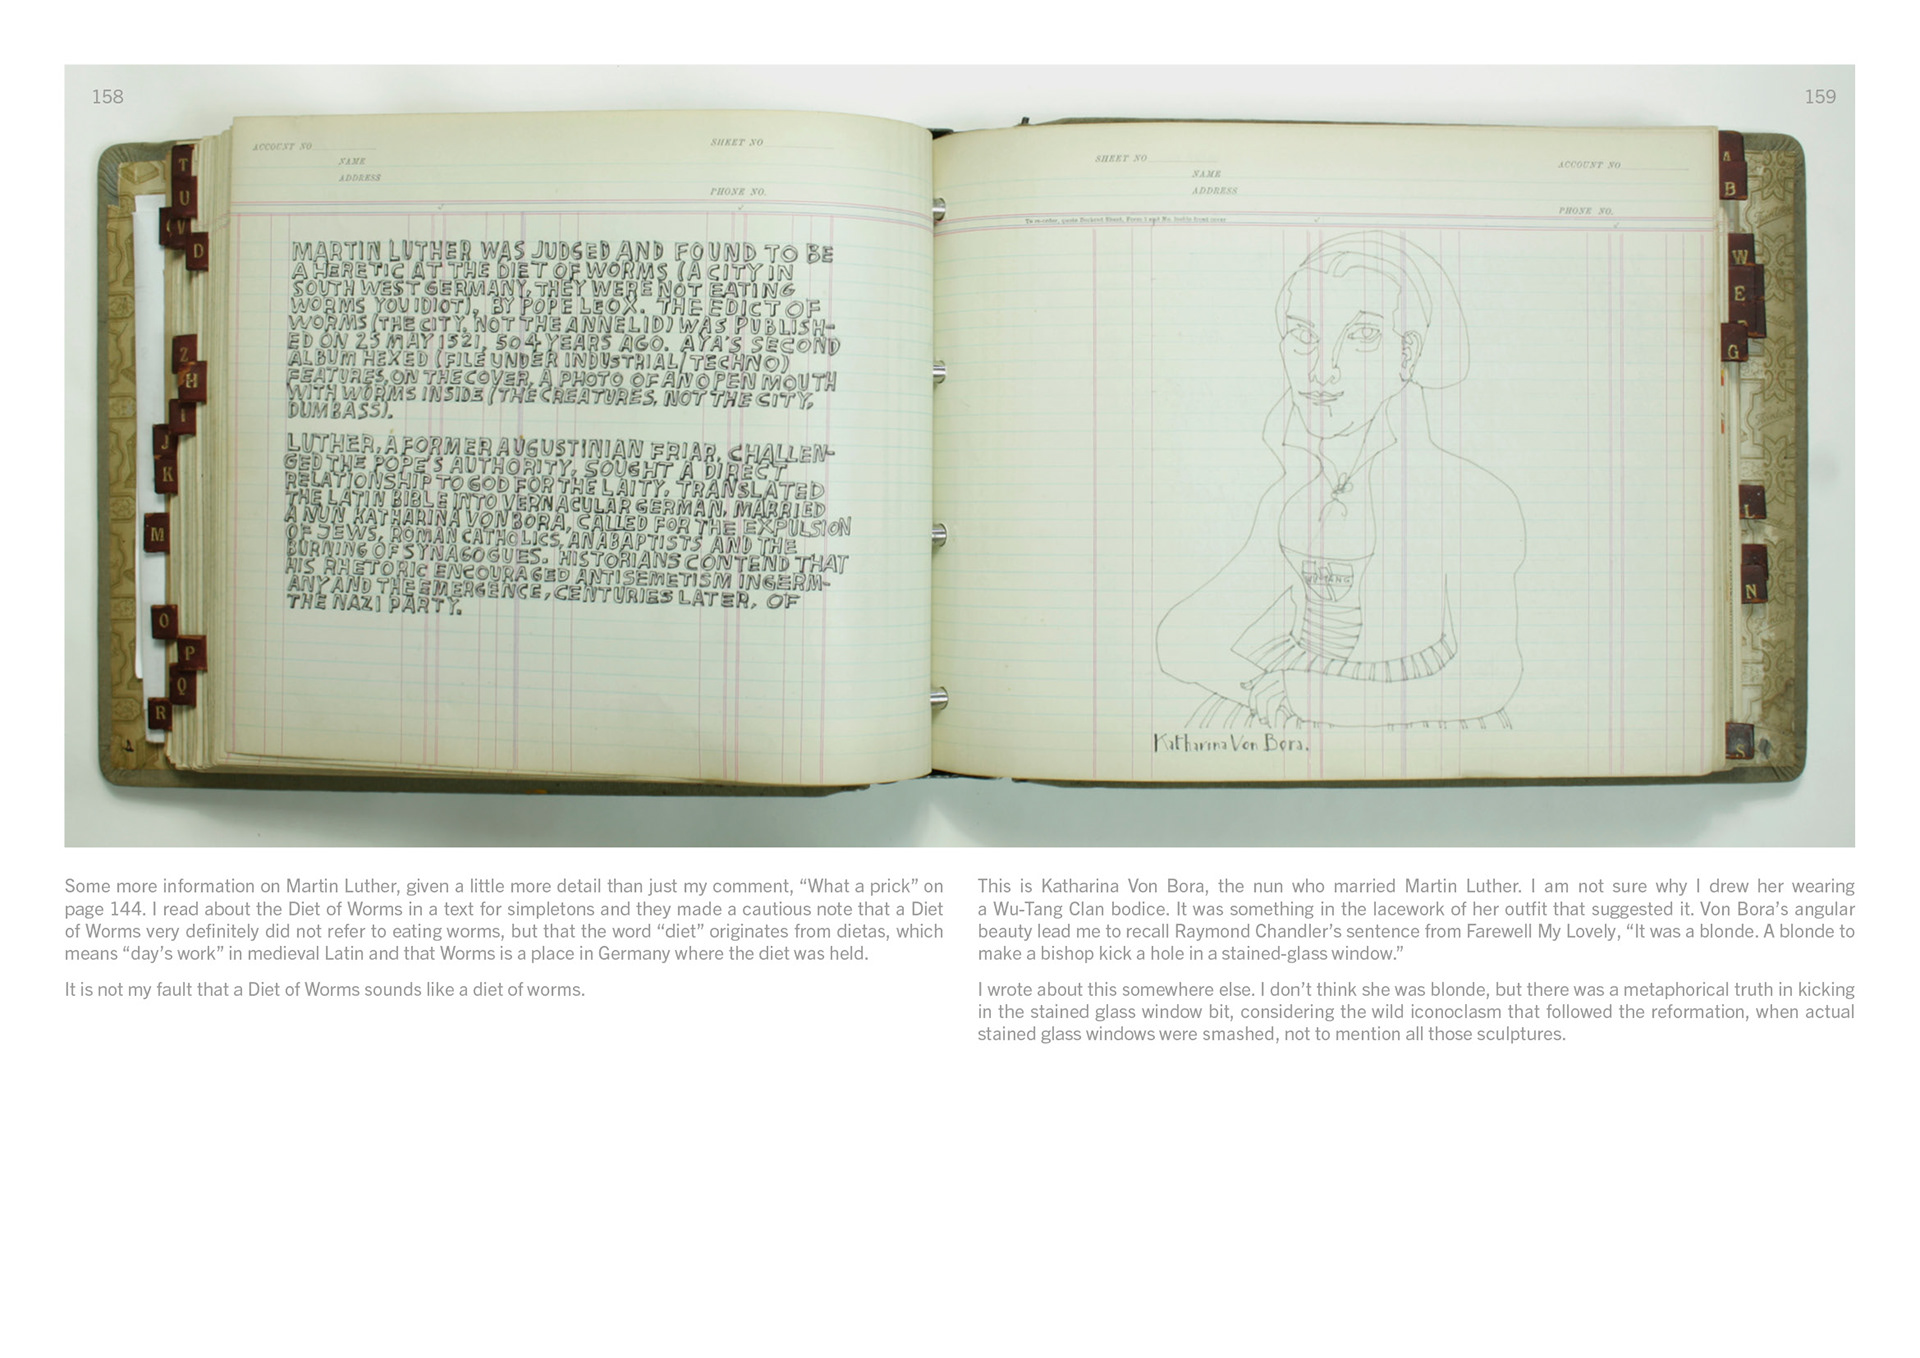 158
159
ACCOUNT NO
SHEET NO
NAME
ADDRESS
PHONE NO.
MARTIN LUTHER WAS JUDGED AND FOUND TO BE
A HERETIC AT THE DIET OF WORMS (A CITY IN
SOUTH WEST GERMANY, THEY WERE NOT EATING
WORMS YOU IDIOT), BY POPE LEO X. THE EDICT OF
WORMS (THE CITY, NOT THE ANNELID) WAS PUBLISH-
ED ON 25 MAY 1521, 504 YEARS AGO. AYA'S SECOND
ALBUM HEXED (FILE UNDER INDUSTRIAL/TECHNO)
FEATURES, ON THE COVER, A PHOTO OF AN OPEN MOUTH
WITH WORMS INSIDE (THE CREATURES, NOT THE CITY,
DUMBASS).
LUTHER, A FORMER AUGUSTINIAN FRIAR, CHALLEN-
GED THE POPE'S AUTHORITY, SOUGHT A DIRECT
RELATIONSHIP TO GOD FOR THE LAITY, TRANSLATED
THE LATIN BIBLE INTO VERNACULAR GERMAN, MARRIED
A NUN KATHARINA VON BORA, CALLED FOR THE EXPULSION
OF JEWS, ROMAN CATHOLICS, ANABAPTISTS AND THE
BURNING OF SYNAGOGUES. HISTORIANS CONTEND THAT
HIS RHETORIC ENCOURAGED ANTISEMETISM IN GERM-
ANY AND THE EMERGENCE, CENTURIES LATER, OF
THE NAZI PARTY.
T
U
V
D
Z
H
I
J
K
M
O
P
Q
R
SHEET NO
ACCOUNT NO
NAME
ADDRESS
PHONE NO.
WU-TANG
Katharina Von Bora.
A
B
W
E
G
L
N
S
Some more information on Martin Luther, given a little more detail than just my comment, “What a prick” on
page 144. I read about the Diet of Worms in a text for simpletons and they made a cautious note that a Diet
of Worms very definitely did not refer to eating worms, but that the word “diet” originates from dietas, which
means “day’s work” in medieval Latin and that Worms is a place in Germany where the diet was held.
It is not my fault that a Diet of Worms sounds like a diet of worms.
This is Katharina Von Bora, the nun who married Martin Luther. I am not sure why I drew her wearing
a Wu-Tang Clan bodice. It was something in the lacework of her outfit that suggested it. Von Bora’s angular
beauty lead me to recall Raymond Chandler’s sentence from Farewell My Lovely, “It was a blonde. A blonde to
make a bishop kick a hole in a stained-glass window.”
I wrote about this somewhere else. I don’t think she was blonde, but there was a metaphorical truth in kicking
in the stained glass window bit, considering the wild iconoclasm that followed the reformation, when actual
stained glass windows were smashed, not to mention all those sculptures.